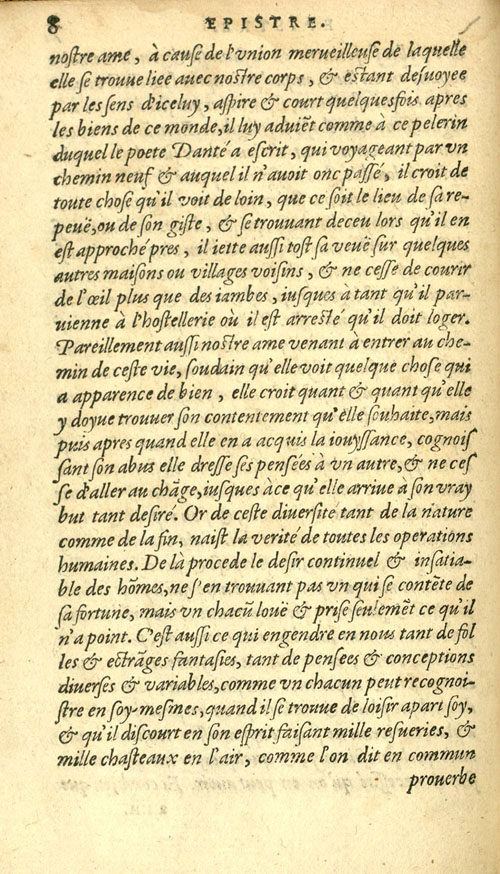 8 EPISTRE.
nostre ame, à cause de l'vnion merueilleuse de laquelle
elle se trouue liee auec nostre corps, & estant desuoyee
par les sens d'iceluy, aspire & court quelquesfois apres
les biens de ce monde, il luy aduiēt comme à ce pelerin
duquel le poete Danté a escrit, qui voyageant par vn
chemin neuf & auquel il n'auoit onc passé, il croit de
toute chose qu'il voit de loin, que ce soit le lieu de sa re-
peuë, ou de son giste, & se trouuant deceu lors qu'il en
est approché pres, il iette aussi tost sa veuë sur quelques
autres maisons ou villages voisins, & ne cesse de courir
de l'œil plus que des iambes, iusques à tant qu'il par-
uienne à l'hostellerie où il est arresté qu'il doit loger.
Pareillement aussi nostre ame venant à entrer au che-
min de ceste vie, soudain qu'elle voit quelque chose qui
a apparence de bien, elle croit quant & quant qu'elle
y doyue trouuer son contentement qu'elle souhaite, mais
puis apres quand elle en a acquis la iouyssance, cognois
sant son abus elle dresse ses pensées à vn autre, & ne ces
se d'aller au chāge, iusques à ce qu'elle arriue à son vray
but tant desiré. Or de ceste diuersité tant de la nature
comme de la fin, naist la verité de toutes les operations
humaines. De là procede le desir continuel & insatia-
ble des hōmes, ne s'en trouuant pas vn qui se contēte de
sa fortune, mais vn chacū louë & prise seulemēt ce qu'il
n'a point. C'est aussi ce qui engendre en nous tant de fol
les & estrāges fantasies, tant de pensees & conceptions
diuerses & variables, comme vn chacun peut recognoi-
stre en soy-mesmes, quand il se trouue de loisir apart soy,
& qu'il discourt en son esprit faisant mille resueries, &
mille chasteaux en l'air, comme l'on dit en commun
prouerbe